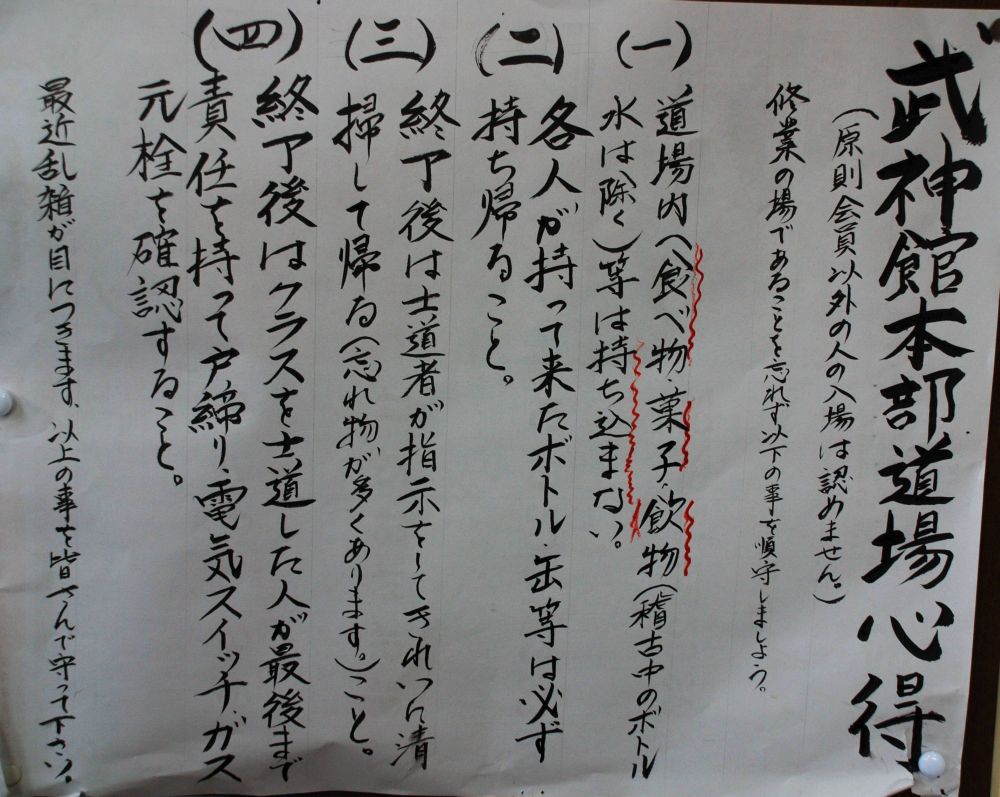 武神館本部道場心得
(原則会員以外の人の入場は認めません。)
修業の場であることを忘れず以下の事を順守しましょう。
(一)
道場内へ食べ物、菓子、飲物(稽古中のボトル
水は除く)等は持ち込まない。
(二)
各人が持って来たボトル、缶等は必ず
持ち帰ること。
(三)
終了後は士道者が指示をしてきれいに清
掃して帰る(忘れ物が多くあります。)こと。
(四)
終了後はクラスを士道した人が最後まで
責任を持って戸締り、電気スイッチガス
元栓を確認すること。
最近乱雑が目につきます、以上の事を皆さんで守って下さい。